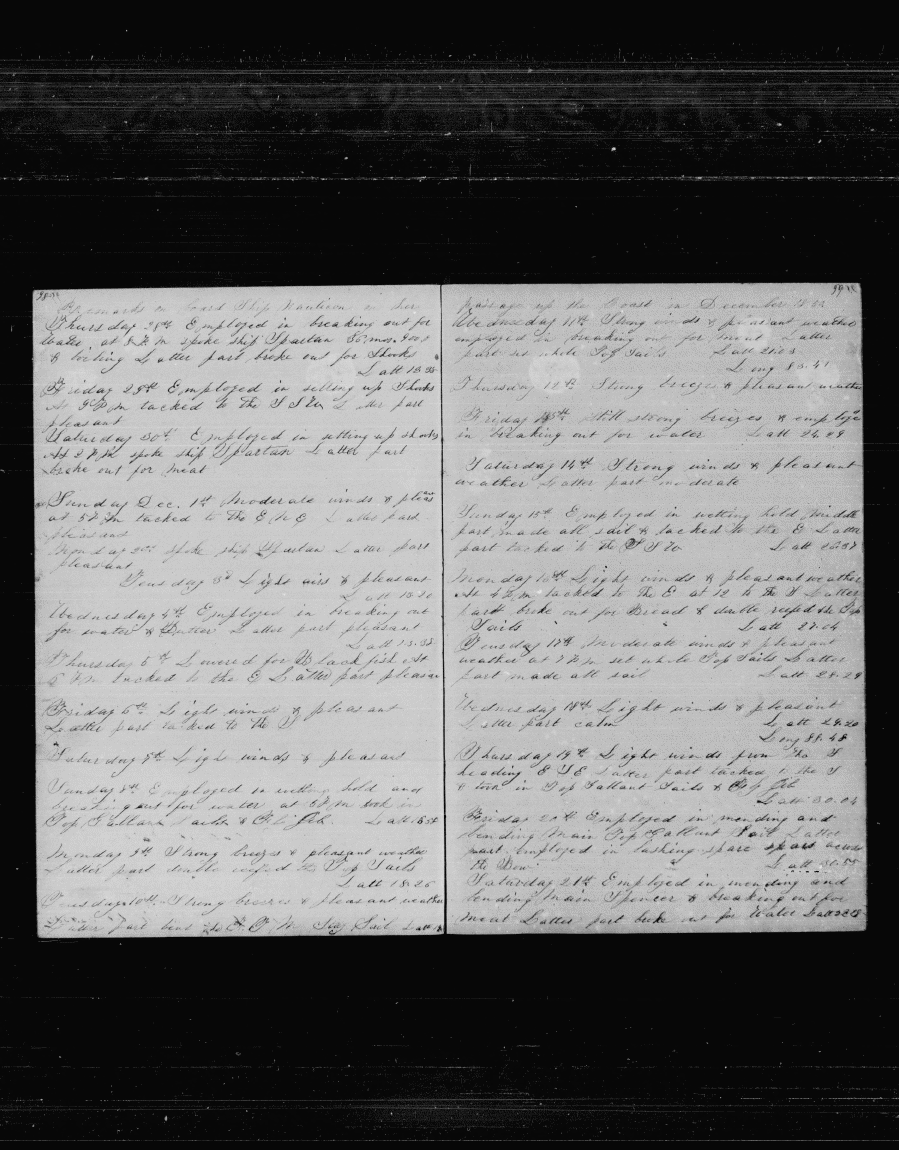 Remarks on board Ship Nauticon in her
Thursday 28th Employed in breaking out for
water at 8 P.M spoke ship Spartan 36 mos, 900
& boiling Latter part broke out for Shooks
Latt 13.38
Friday 29th Employed in setting up Shooks
At 9 P.M tacked to the S S W Latter part
pleasant
Saturday 30th Employed in setting up shooks
At 2 P.M spoke ship Spartan Latter part
broke out for meat
Sunday Dec. 1st Moderate winds & pleas
at 5 P.M tacked to the E N E Latter part
pleasant
Monday 2nd spoke ship Spartan Latter part
pleasant
Tuesday 3d Light airs & pleasant
Latt 13.20
Wednesday 4th Employed in breaking out
for water & Butter Latter part pleasant
Latt 13.32
Thursday 5th Lowered for Blackfish At
6 P.M tacked to the E Latter part pleasan
Friday 6th Light winds & pleasant
Latter part tacked to the S
Saturday 7th Light winds & pleasant
Sunday 8th Employed in wetting hold and
breaking out for water at 6 P.M took in
Top Gallant Sails & F. Jib Latt
Monday 9th Strong breezes & pleasant weather
Latter part double reefed the Top Sails
Latt 18.26
Tuesday 10th Strong breezes & pleasant weather
Latter part bent the Stay Sail Latt
passage up the Coast in December
Wednesday 11th Strong winds & pleasant weather
employed in breaking out for meat Latter
part set whole Top Sails Latt 21.03
Long 83.41
Thursday 12th Strong breezes & pleasant weather
Friday 13th still strong breezes & employed
in breaking out for water Latt 24.29
Saturday 14th Strong winds & pleasant
weather Latter part moderate
Sunday 15th Employed in wetting hold Middle
part made all sail & tacked to the E Latter
part tacked to the S S W Latt 26.37
Monday 16th Light winds & pleasant weather
At 4 P.M tacked to the E at 12 to the S Latter
part broke out for Bread & double reefed the Top
Sails " Latt 27.04
Tuesday 17th Moderate winds & pleasant
weather at 7 P.M set whole Top Sails Latter
part made all sail Latt 28.29
Wednesday 18th Light winds & pleasant
Latter part calm Latt 29.20
Long 88.48
Thursday 19th Light winds from the S
heading E S E Latter part tacked to the S
& took in Top Gallant Sails & Jib
Latt 30.04
Friday 20th Employed in mending and
bending Main Top Gallant Sail Latter
part employed in lashing spare spars across
the Bow Latt 30.55
Saturday 21st Employed in mending and
bending Main Spencer & breaking out for
meat Latter part broke out for Water Latt